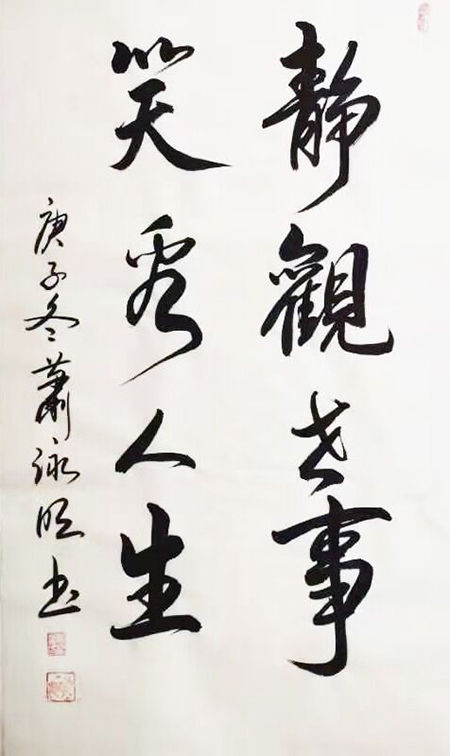 靜觀世事
笑看人生
庚子冬蕭詠旺书